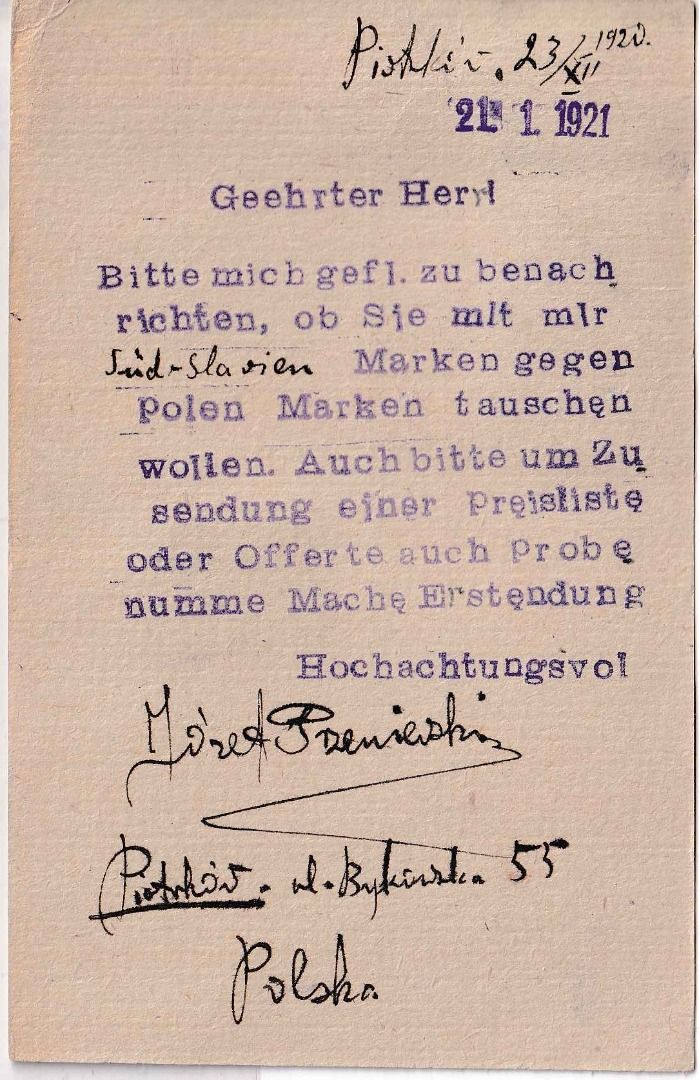 Piotrków. 23/XII 1920.
21. 1. 1921
Geehrter Herr!
Bitte mich gefl. zu benach
richten, ob Sie mit mir
Süd-Slavien Marken gegen
Polen Marken tauschen
wollen. Auch bitte um Zu
sendung einer Preisliste
oder Offerte auch Probe
numme Mache Erstendung
Hochachtungsvol
Józef
Piotrków. ul. 55
Polska